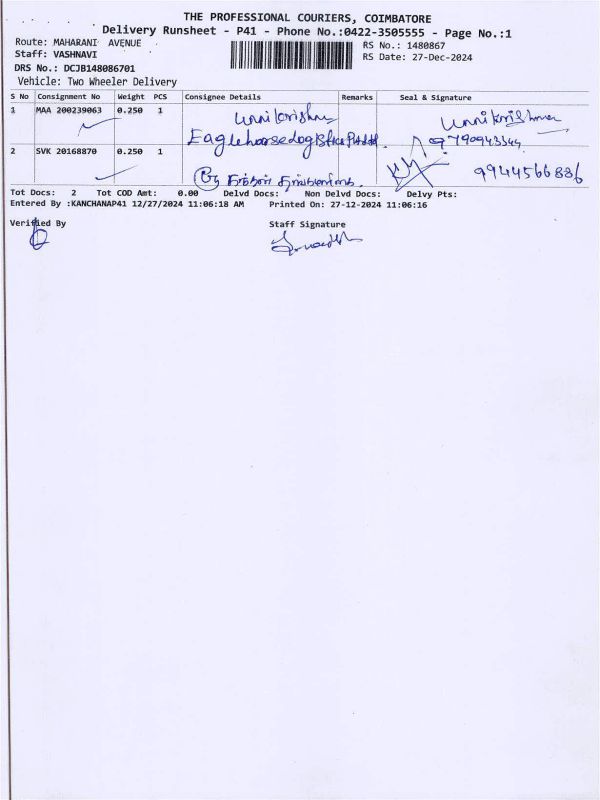 THE PROFESSIONAL COURIERS, COIMBATORE
Delivery Runsheet - P41 - Phone No.:0422-3505555 - Page No.:1
Route: MAHARANI AVENUE
RS No.: 1480867
Staff: VASHNAVI
RS Date: 27-Dec-2024
DRS No.: DCJB148086701
Vehicle: Two Wheeler Delivery
S No Consignment No Weight PCS Consignee Details Remarks Seal & Signature
1 MAA 200239063 0.250 1 Unnikrishnan Unnikrishnan
09790943344
2 SVK 20168870 0.250 1 9944566886
Tot Docs: 2 Tot COD Amt: 0.00 Delvd Docs: Non Delvd Docs: Delvy Pts:
Entered By :KANCHANAP41 12/27/2024 11:06:18 AM Printed On: 27-12-2024 11:06:16
Verified By Staff Signature